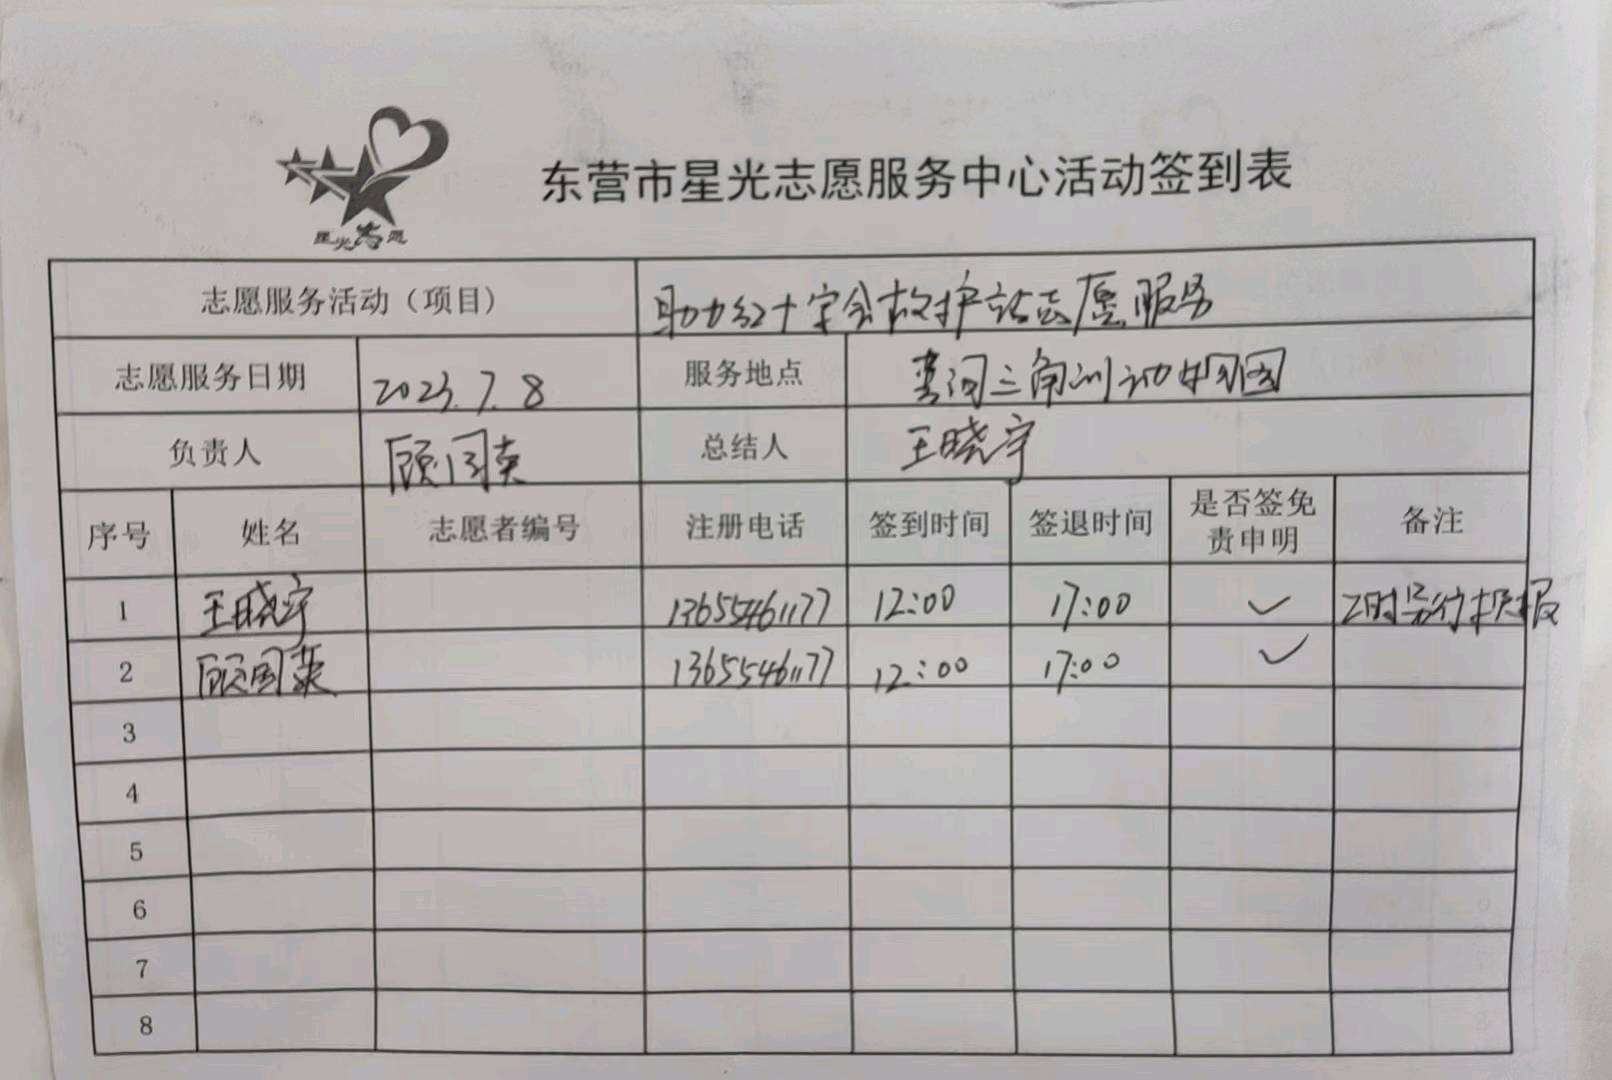 星光志愿
东营市星光志愿服务中心活动签到表
志愿服务活动（项目） 助力红十字会救护站志愿服务
志愿服务日期 2023.7.8 服务地点 黄河三角洲动物园
负责人 顾国英 总结人 王晓宇
序号 姓名 志愿者编号 注册电话 签到时间 签退时间 是否签免责申明 备注
1 王晓宇 13655461177 12:00 17:00 ✓
2 顾国英 13655461177 12:00 17:00 ✓
3
4
5
6
7
8